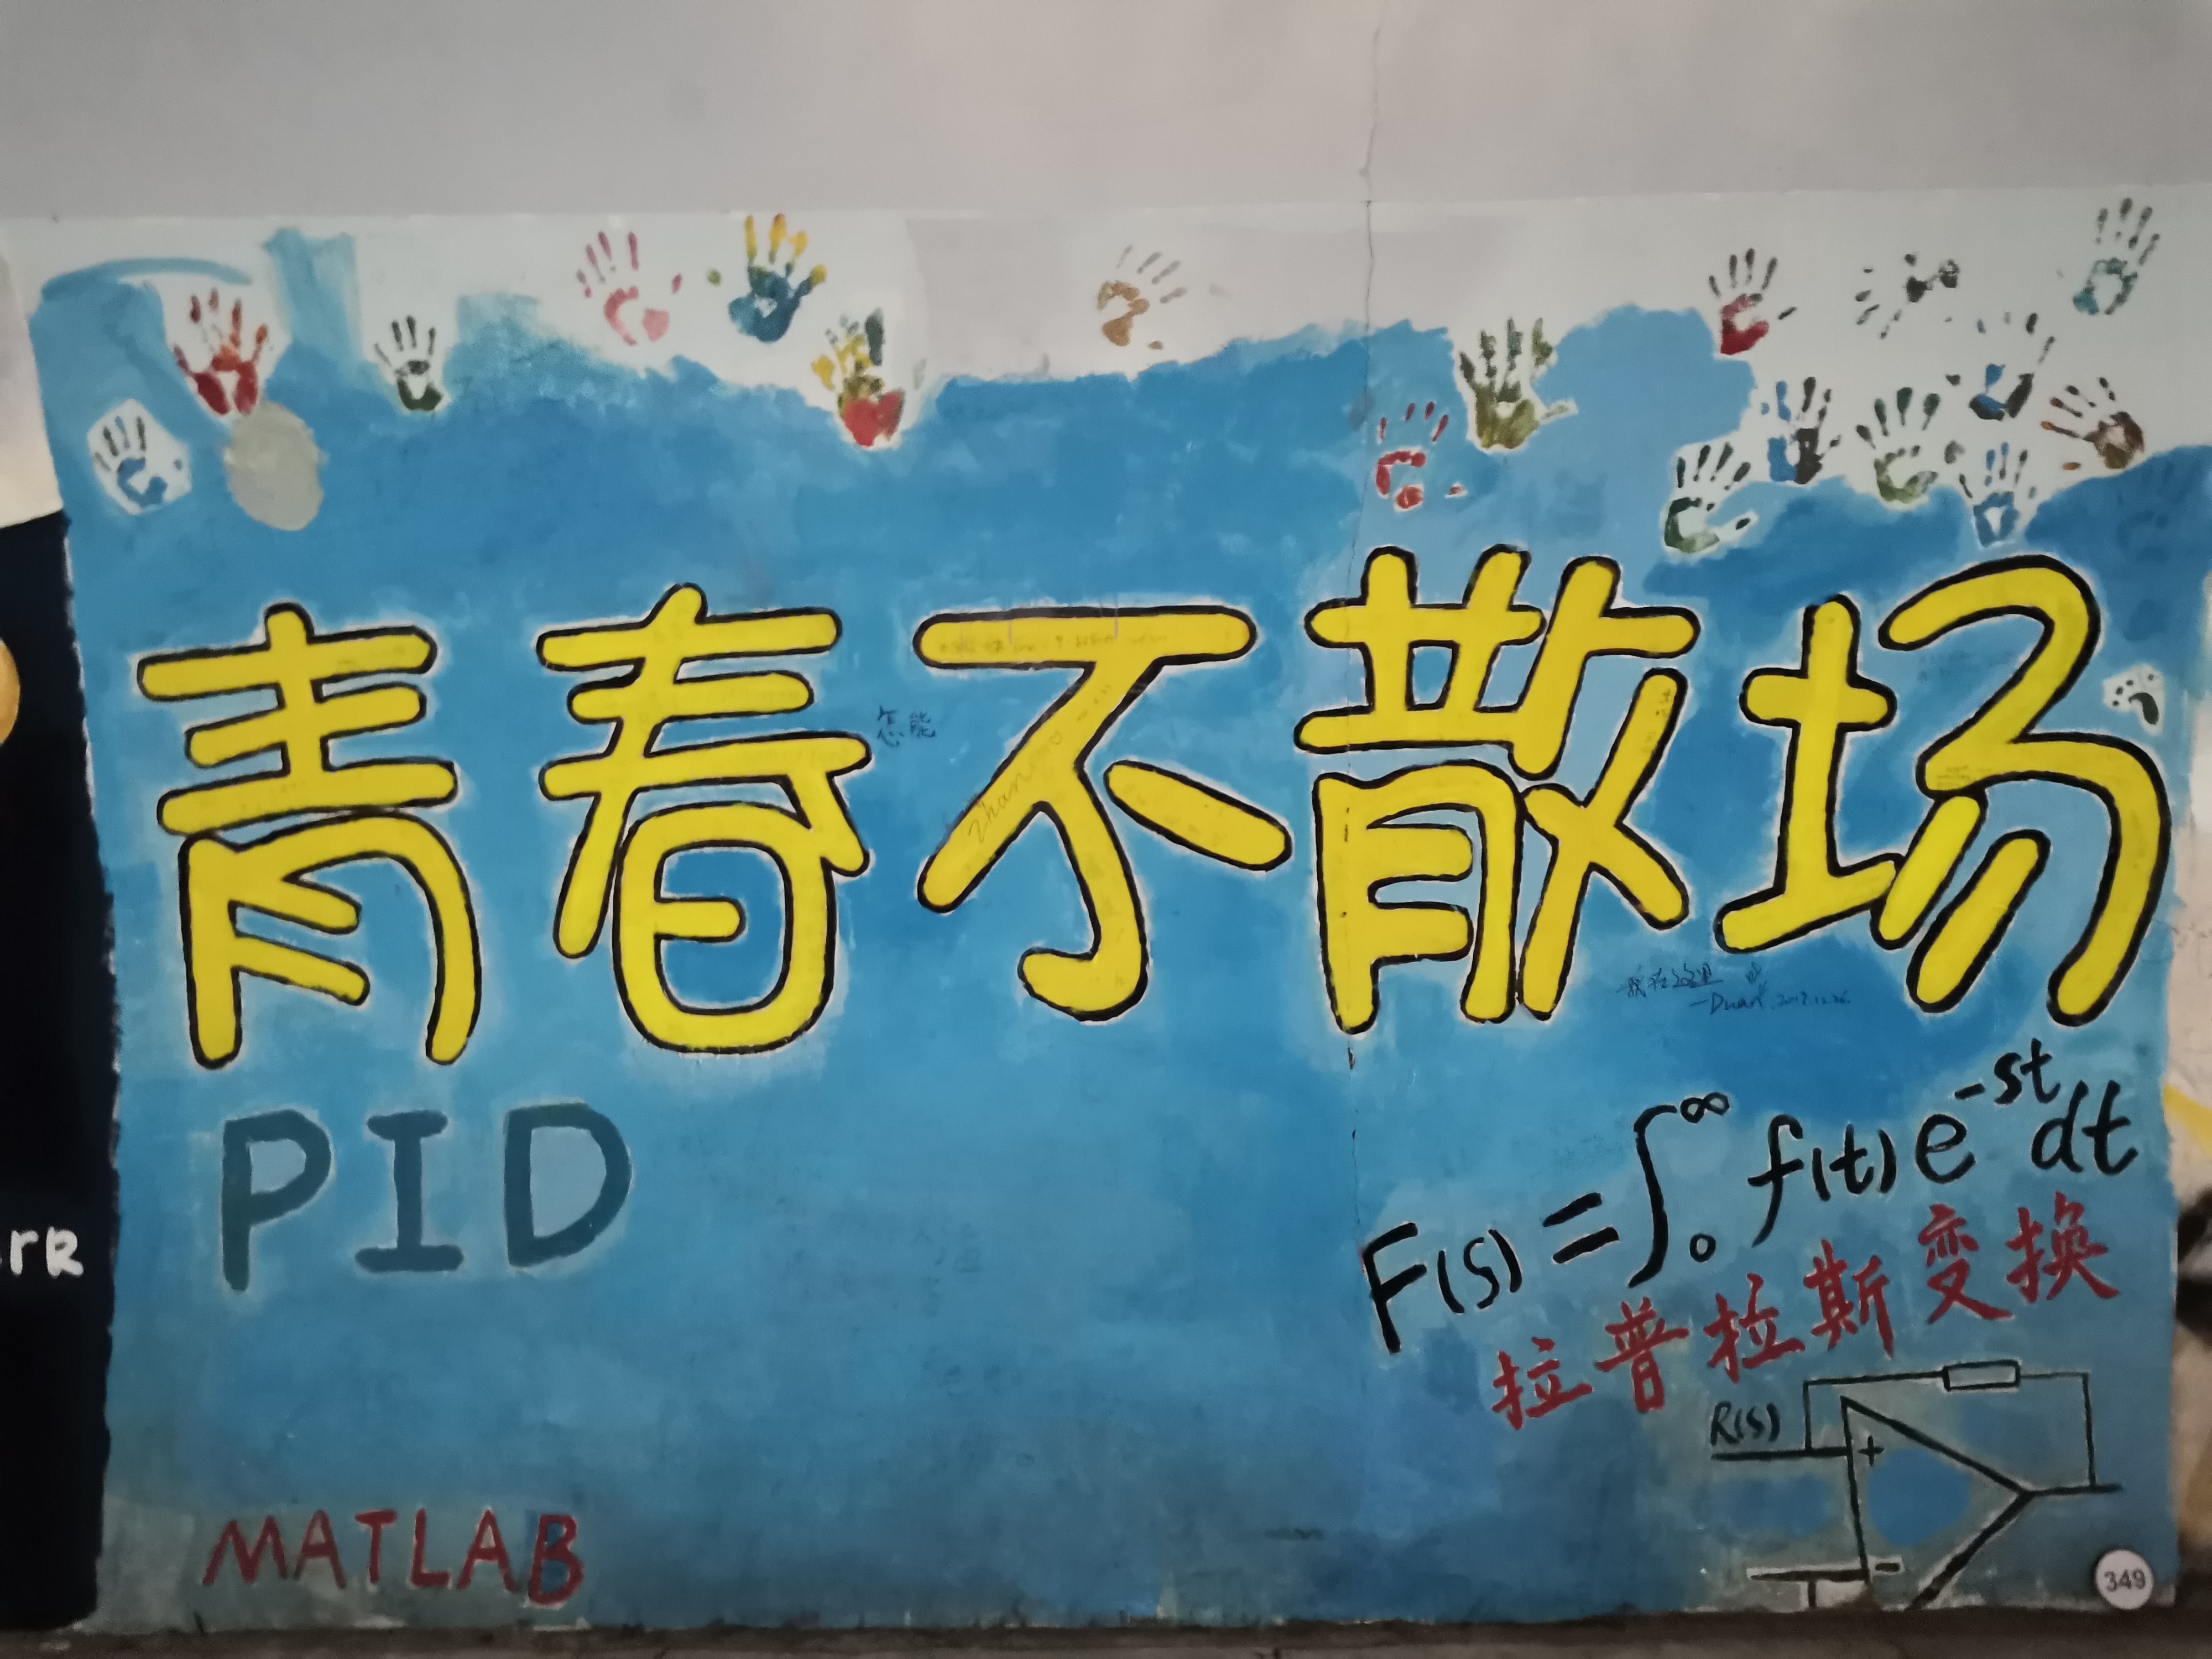 青春不散场
怎能
Zhan
我在这里
-Duan.2017.12.26.
PID
F(s)=∫₀^∞ f(t)e^-st dt
拉普拉斯变换
R(s)
+
-
MATLAB
349